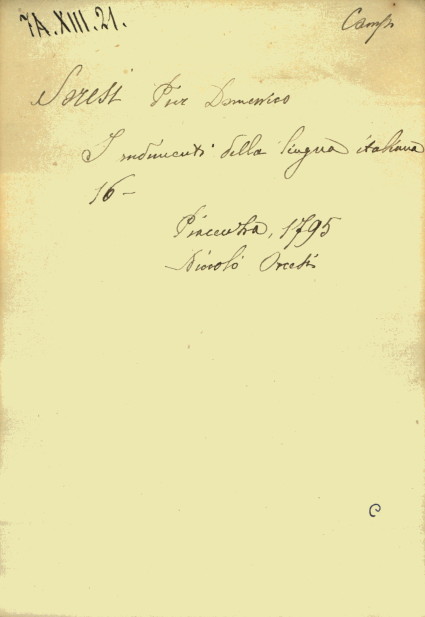 7A.XIII.21.
Camp.
Soresi Pier Domenico
I rudimenti della lingua italiana
16-
Piacenza, 1795
Niccolò Orcesi
C